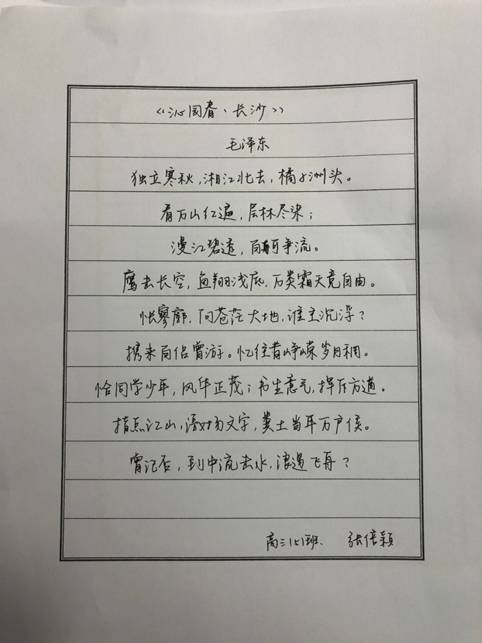 《沁园春·长沙》
毛泽东
独立寒秋，湘江北去，橘子洲头。
看万山红遍，层林尽染；
漫江碧透，百舸争流。
鹰击长空，鱼翔浅底，万类霜天竞自由。
怅寥廓，问苍茫大地，谁主沉浮？
携来百侣曾游。忆往昔峥嵘岁月稠。
恰同学少年，风华正茂；书生意气，挥斥方遒。
指点江山，激扬文字，粪土当年万户侯。
曾记否，到中流击水，浪遏飞舟？
高三（1）班 张倍颖